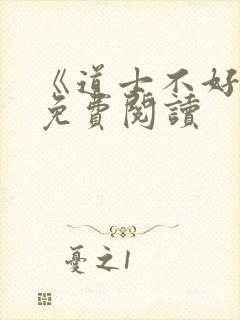 《道士不好
免費閱讀
憂之1